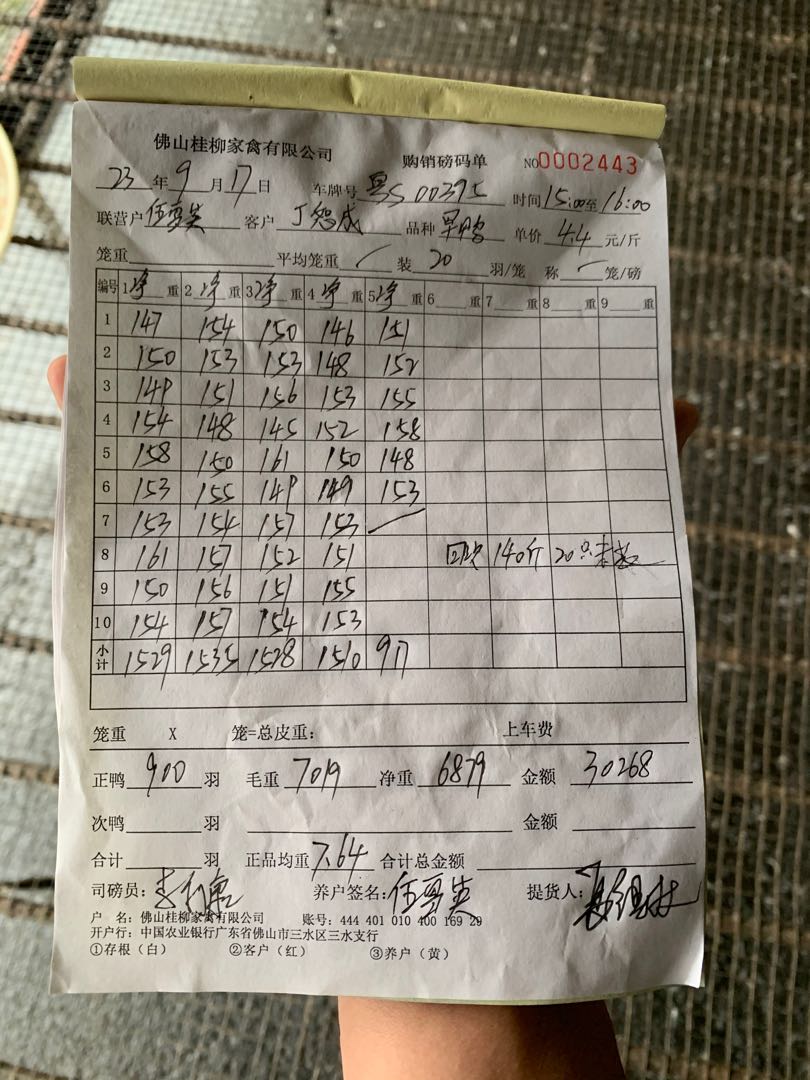 佛山桂柳家禽有限公司 购销磅码单 NO0002443
23年9月17日 车牌号 粤S 00395 时间15:00至16:00
联营户 客户 丁智成 品种 单价4.4元/斤
笼重 平均笼重 / 装20羽/笼 称 / 笼/磅
编号 1净重 2净重 3净重 4净重 5净重 6重 7重 8重 9重
1 147 154 150 146 151
2 150 153 153 148 152
3 149 151 156 153 155
4 154 148 145 152 158
5 158 150 161 150 148
6 153 155 149 149 153
7 153 154 157 153 /
8 161 157 152 151 140斤 20只
9 150 156 151 155
10 154 157 154 153
小计 1529 1535 1528 1510 917
笼重 X 笼=总皮重: 上车费
正鸭900羽 毛重7019 净重6879 金额30268
次鸭 羽 金额
合计 羽 正品均重7.64 合计总金额
司磅员: 养户签名: 提货人:
户 名: 佛山桂柳家禽有限公司 账号: 444 401 010 400 169 29
开户行: 中国农业银行广东省佛山市三水区三水支行
①存根(白) ②客户(红) ③养户(黄)